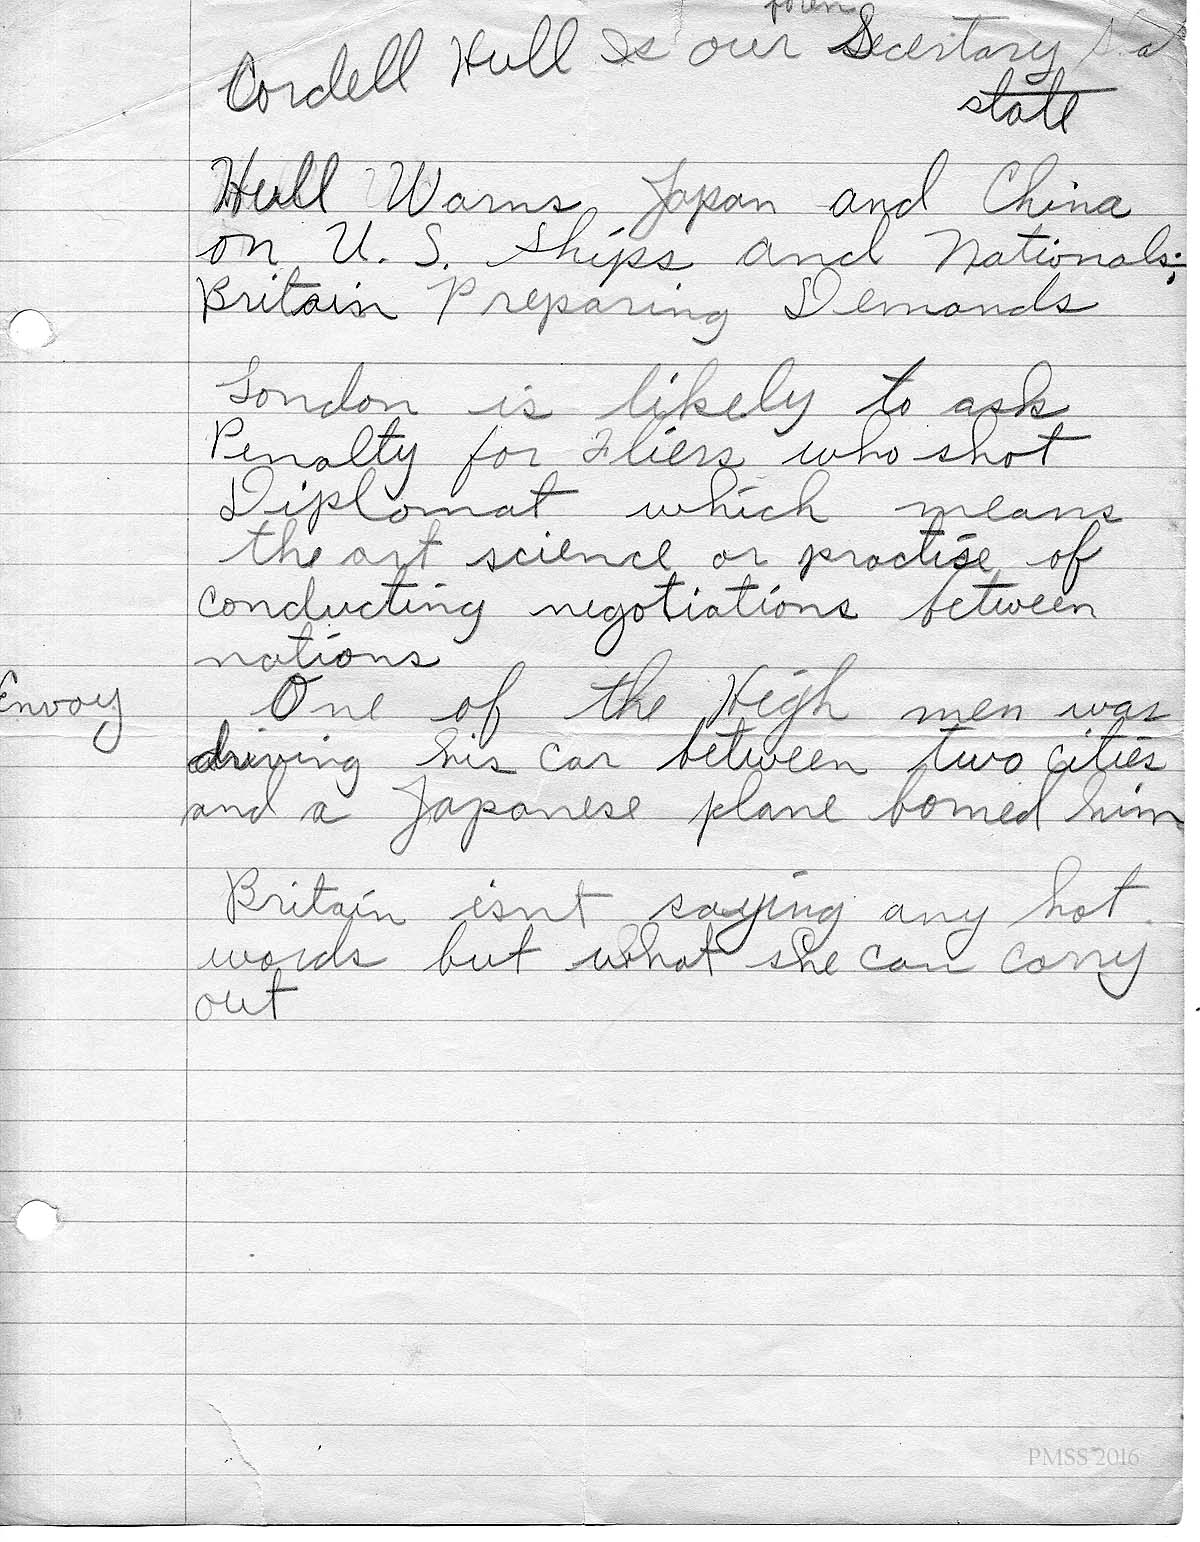 foren
Cordell Hull Is our Secertary
state
Hull Warns Japan and China
on U. S. Ships and Nationals;
Britain Preparing Demands
London is likely to ask
Penalty for Fliers who shot
Diplomat which means
the art science or practise of
conducting negotiations between
nations
Envoy One of the High men was
driving his car between two cities
and a Japanese plane bomed him
Britain isnt saying any hot
words but what she can carry
out
PMSS 2016